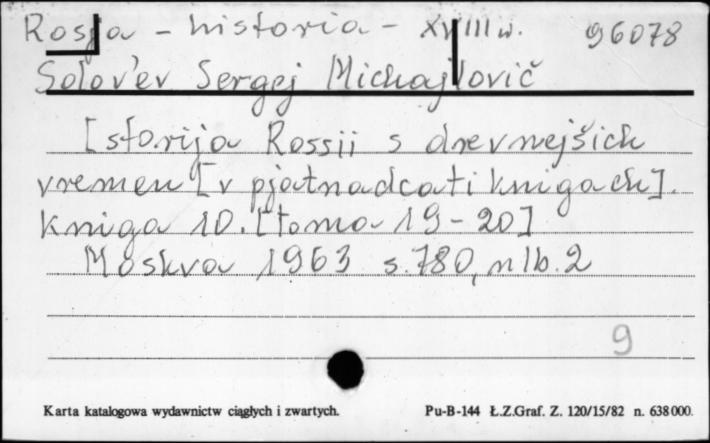 Rosja - historia - XVIII w. 96078
Solov'ev Sergej Michajlovič
Istorija Rossii s drevnejšich
vremen [v pjatnadcati knigach].
Kniga 10. [toma 19-20]
Moskva 1963 s. 780, nlb. 2
9
Karta katalogowa wydawnictw ciągłych i zwartych. Pu-B-144 Ł.Z.Graf. Z. 120/15/82 n. 638000.